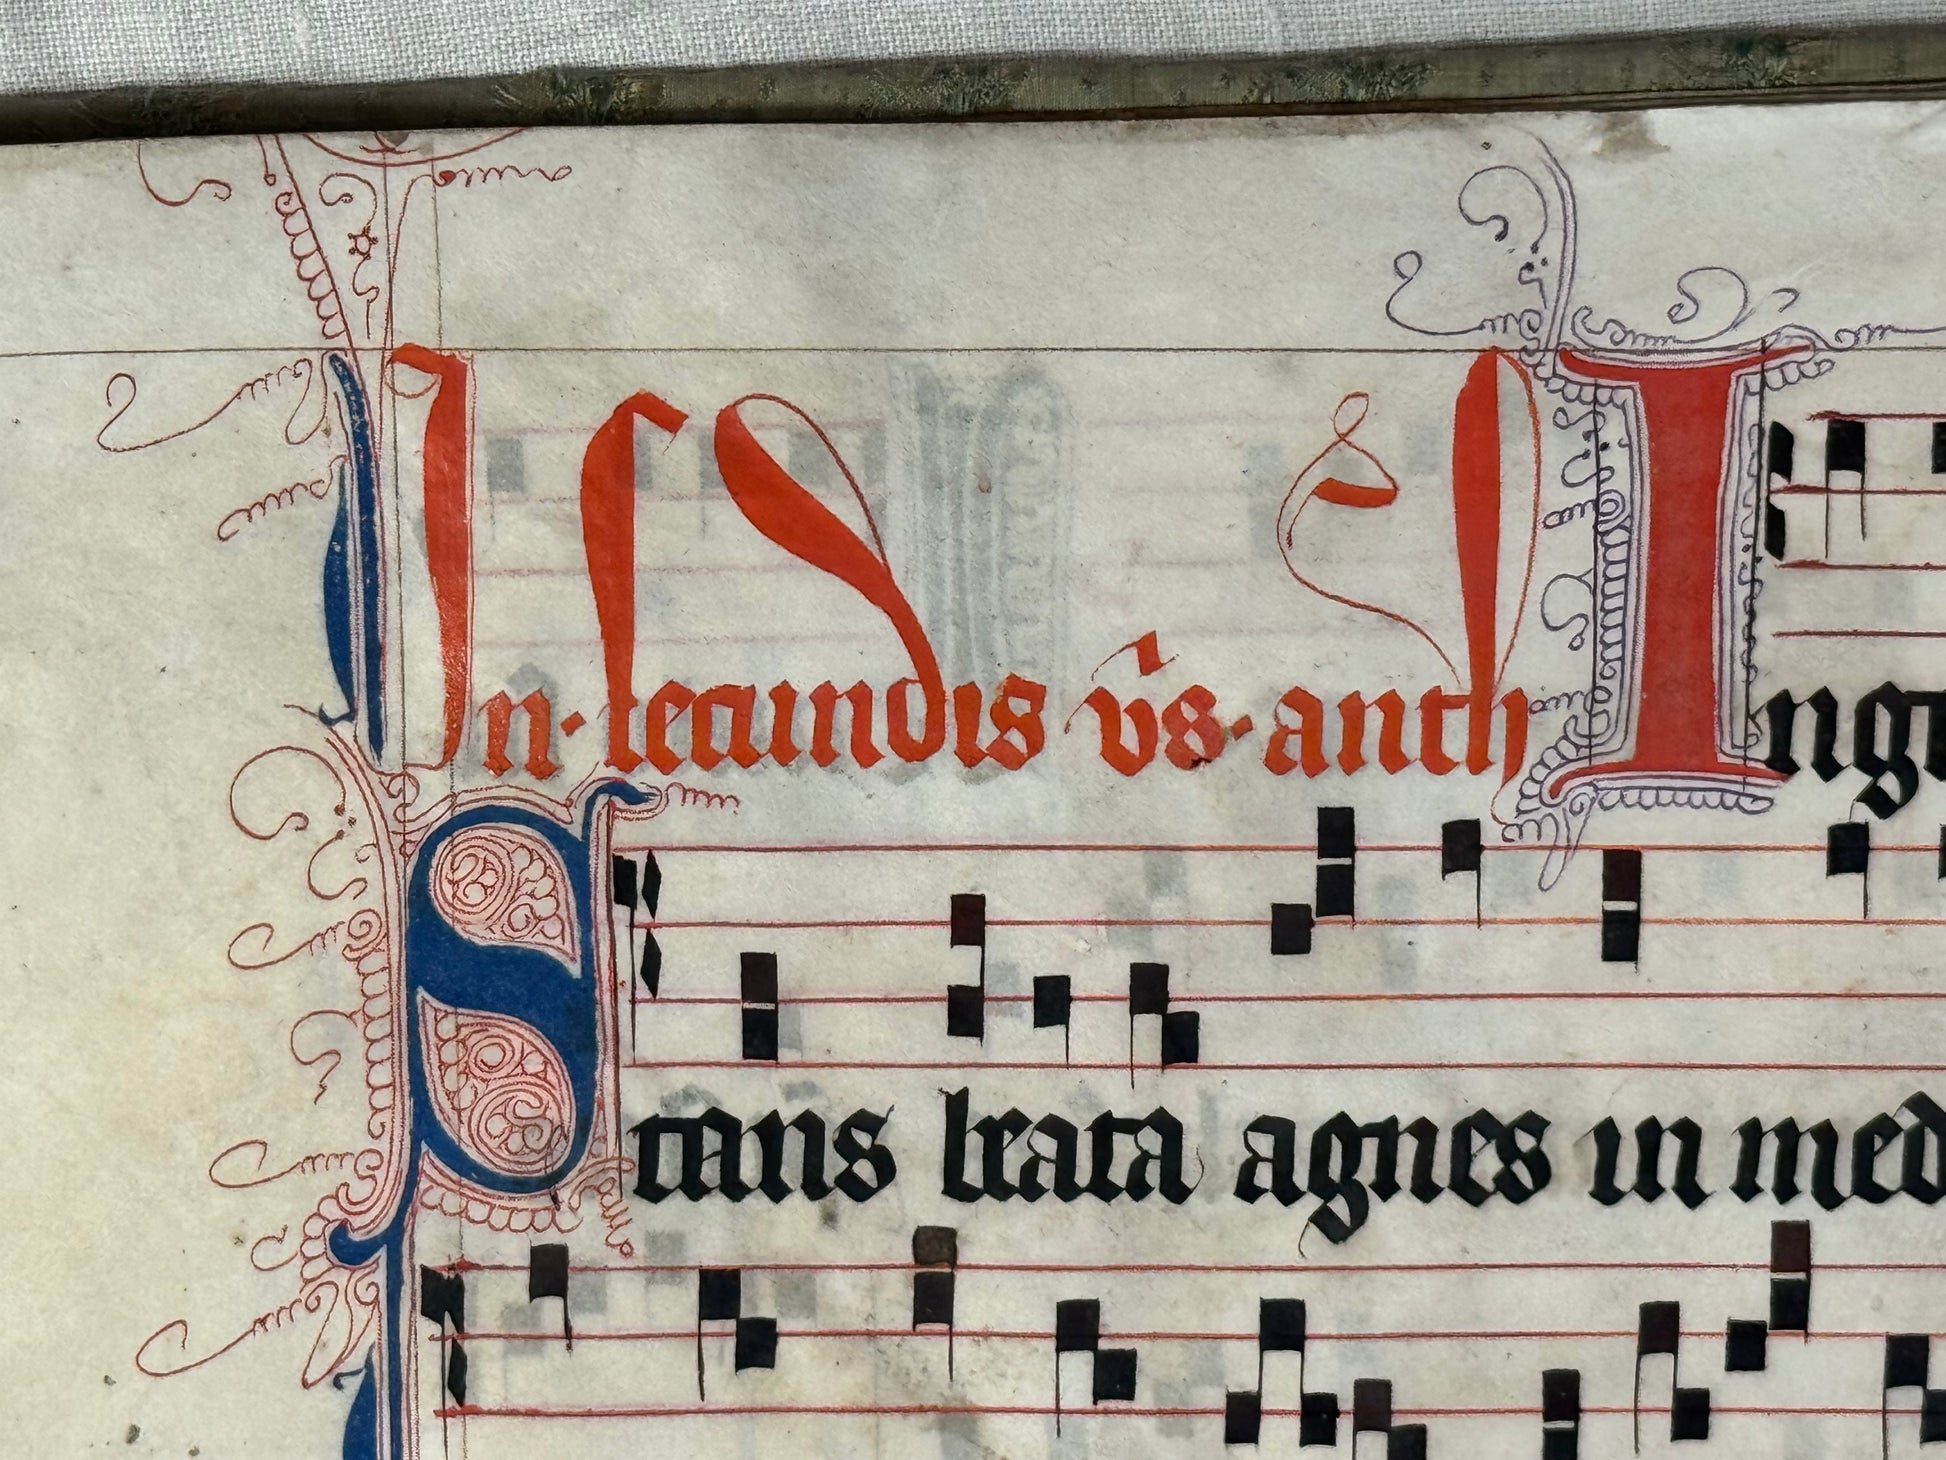 In· secundis vs̄· anth Ingr
Stans beata agnes in med